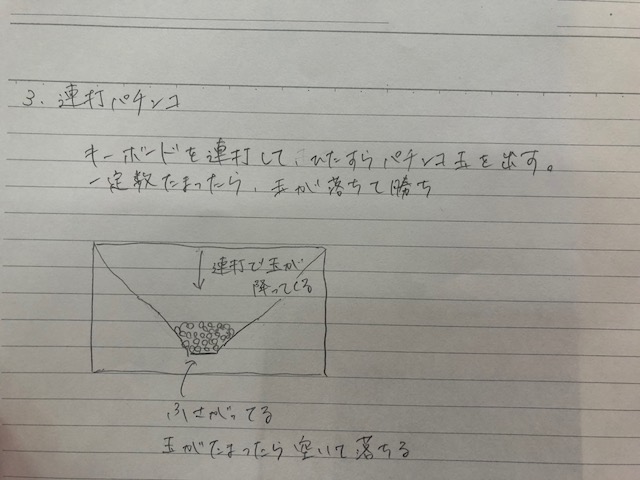 3. 連打パチンコ
キーボードを連打して、ひたすらパチンコ玉を出す。
一定数たまったら、玉が落ちて勝ち
連打で玉が
降ってくる
ふさがってる
玉がたまったら空いて落ちる